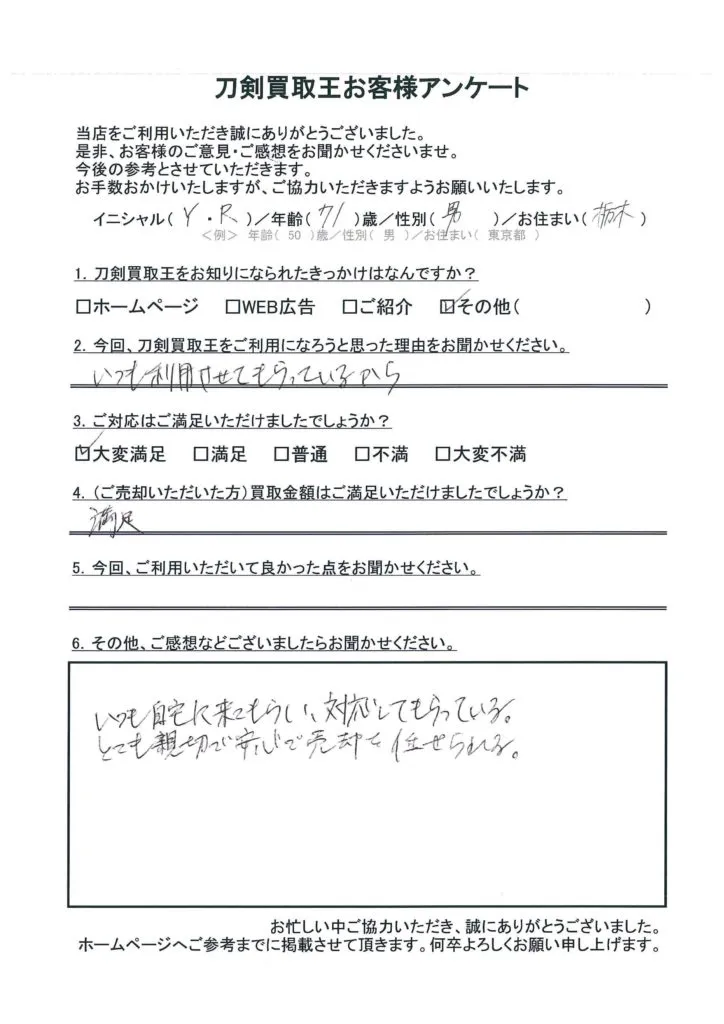 刀剣買取王お客様アンケート
当店をご利用いただき誠にありがとうございました。
是非、お客様のご意見・ご感想をお聞かせくださいませ。
今後の参考とさせていただきます。
お手数おかけいたしますが、ご協力いただきますようお願いいたします。
イニシャル( Y ・ R )／年齢( 71 )歳／性別( 男 )／お住まい( 栃木 )
＜例＞ 年齢( 50 )歳／性別( 男 )／お住まい( 東京都 )
1. 刀剣買取王をお知りになられたきっかけはなんですか？
□ホームページ □WEB広告 □ご紹介 ☑その他( )
2. 今回、刀剣買取王をご利用になろうと思った理由をお聞かせください。
いつも利用させてもらっているから
3. ご対応はご満足いただけましたでしょうか？
☑大変満足 □満足 □普通 □不満 □大変不満
4. (ご売却いただいた方)買取金額はご満足いただけましたでしょうか？
満足
5. 今回、ご利用いただいて良かった点をお聞かせください。
6. その他、ご感想などございましたらお聞かせください。
いつも自宅に来てもらい、対応してもらっている。
とても親切で安心で売却を任せられる。
お忙しい中ご協力いただき、誠にありがとうございました。
ホームページへご参考までに掲載させて頂きます。何卒よろしくお願い申し上げます。